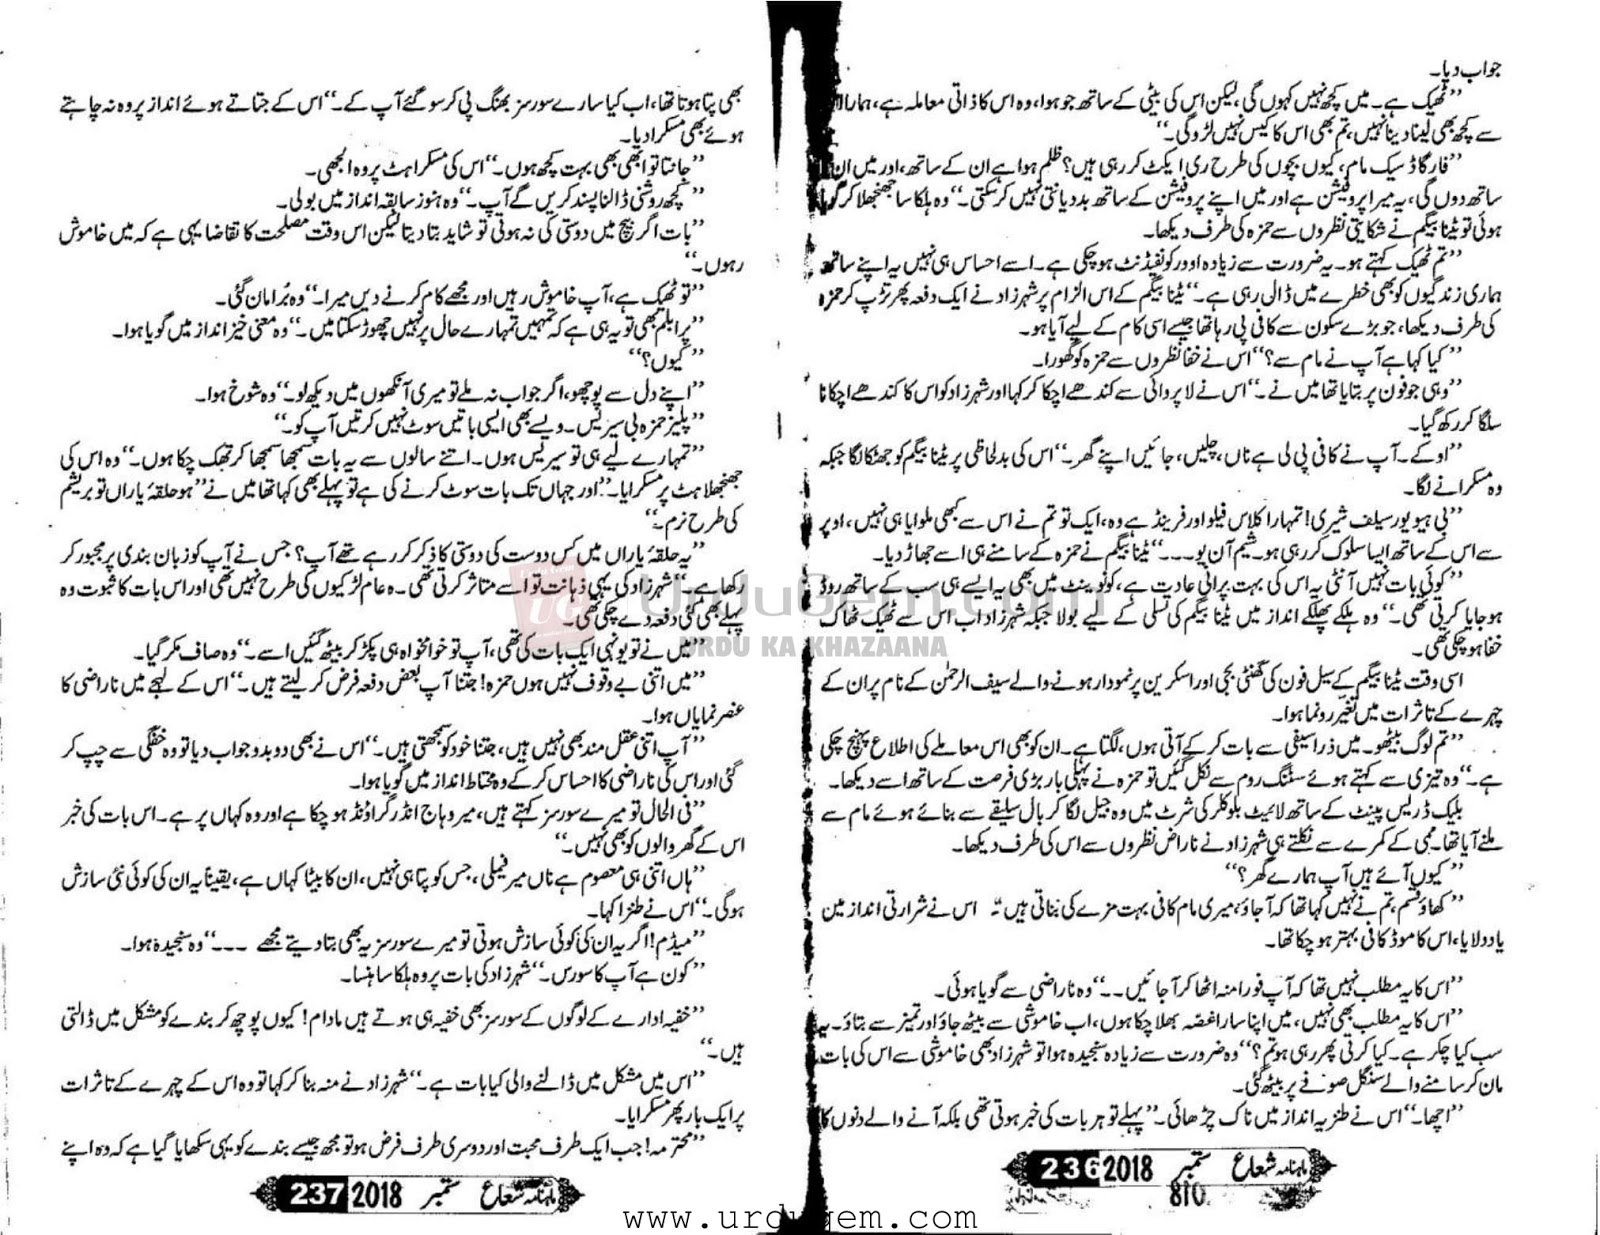 جواب دیا۔
”ٹھیک ہے۔ میں کچھ نہیں کہوں گی، لیکن اس کی بیٹی کے ساتھ جو ہوا، وہ اس کا ذاتی معاملہ ہے، ہمارا
سے کچھ بھی لینا دینا نہیں، تم بھی اس کا کیس نہیں لڑو گی۔“
”فار گاڈ سیک مام، کیوں بچوں کی طرح ری ایکٹ کر رہی ہیں؟ ظلم ہوا ہے ان کے ساتھ، اور میں ان
ساتھ دوں گی، یہ میرا پروفیشن ہے اور میں اپنے پروفیشن کے ساتھ بددیانتی نہیں کر سکتی۔“ وہ ہلکا سا جھنجھلا کر گویا
ہوئی تو ٹینا بیگم نے شکایتی نظروں سے حمزہ کی طرف دیکھا۔
”تم ٹھیک کہتے ہو۔ یہ ضرورت سے زیادہ اوور کونفیڈنٹ ہو چکی ہے۔ اسے احساس ہی نہیں یہ اپنے ساتھ
ہماری زندگیوں کو بھی خطرے میں ڈال رہی ہے۔“ ٹینا بیگم کے اس الزام پر شہرزاد نے ایک دفعہ پھر تڑپ کر حمزہ
کی طرف دیکھا، جو بڑے سکون سے کافی پی رہا تھا جیسے اسی کام کے لیے آیا ہو۔
”کیا کہا ہے آپ نے مام سے؟“ اس نے خفا نظروں سے حمزہ کو گھورا۔
”وہی جو فون پر بتایا تھا میں نے۔“ اس نے لاپروائی سے کندھے اچکا کر کہا اور شہرزاد کو اس کا کندھے اچکانا
سلگا کر رکھ گیا۔
”اوکے۔ آپ نے کافی پی لی ہے ناں، چلیں، جائیں اپنے گھر۔“ اس کی بدلحاظی پر ٹینا بیگم کو جھٹکا لگا جبکہ
وہ مسکرانے لگا۔
”بی ہیو یور سیلف شیری! تمہارا کلاس فیلو اور فرینڈ ہے وہ، ایک تو تم نے اس سے کبھی ملوایا ہی نہیں، اوپر
سے اس کے ساتھ ایسا سلوک کر رہی ہو۔ شیم آن یو۔۔۔“ ٹینا بیگم نے حمزہ کے سامنے ہی اسے جھاڑ دیا۔
”کوئی بات نہیں آنٹی یہ اس کی بہت پرانی عادت ہے، کونوینٹ میں بھی یہ ایسے ہی سب کے ساتھ روڈ
ہو جایا کرتی تھی۔“ وہ ہلکے پھلکے انداز میں ٹینا بیگم کی تسلی کے لیے بولا جبکہ شہرزاد اب اس سے ٹھیک ٹھاک
خفا ہو چکی تھی۔
اسی وقت ٹینا بیگم کے سیل فون کی گھنٹی بجی اور اسکرین پر نمودار ہونے والے سیف الرحمٰن کے نام پر ان کے
چہرے کے تاثرات میں تغیر رونما ہوا۔
”تم لوگ بیٹھو۔ میں ذرا سیفی سے بات کر کے آتی ہوں، لگتا ہے۔ ان کو بھی اس معاملے کی اطلاع پہنچ چکی
ہے۔“ وہ تیزی سے کہتے ہوئے سٹنگ روم سے نکل گئیں تو حمزہ نے پہلی بار بڑی فرصت کے ساتھ اسے دیکھا۔
بلیک ڈریس پینٹ کے ساتھ لائیٹ بلو کلر کی شرٹ میں وہ جیل لگا کر بال سلیقے سے بنائے ہوئے مام سے
ملنے آیا تھا۔ ممی کے کمرے سے نکلتے ہی شہرزاد نے ناراض نظروں سے اس کی طرف دیکھا۔
”کیوں آئے ہیں آپ ہمارے گھر؟“
”کھاؤ قسم، تم نے نہیں کہا تھا کہ آ جاؤ، میری مام کافی بہت مزے کی بناتی ہیں“۔ اس نے شرارتی انداز مین
یاد دلایا، اس کا موڈ کافی بہتر ہو چکا تھا۔
”اس کا یہ مطلب نہیں تھا کہ آپ فورا منہ اٹھا کر آ جائیں۔۔“ وہ ناراضی سے گویا ہوئی۔
”اس کا یہ مطلب بھی نہیں، میں اپنا سارا غصہ بھلا چکا ہوں، اب خاموشی سے بیٹھ جاؤ اور تمیز سے بتاؤ۔ یہ
سب کیا چکر ہے۔ کیا کرتی پھر رہی ہو تم؟“ وہ ضرورت سے زیادہ سنجیدہ ہوا تو شہرزاد بھی خاموشی سے اس کی بات
مان کر سامنے والے سنگل صوفے پر بیٹھ گئی۔
”اچھا۔“ اس نے طنزیہ انداز میں ناک چڑھائی۔ ”پہلے تو ہر بات کی خبر ہوتی تھی بلکہ آنے والے دنوں کا
ماہنامہ شعاع ستمبر 2018 236
810
بھی پتا ہوتا تھا، اب کیا سارے سورسز بھنگ پی کر سو گئے آپ کے۔“ اس کے جتاتے ہوئے انداز پر وہ نہ چاہتے
ہوئے بھی مسکرا دیا۔
”جانتا تو ابھی بھی بہت کچھ ہوں۔“ اس کی مسکراہٹ پر وہ الجھی۔
”کچھ روشنی ڈالنا پسند کریں گے آپ۔“ وہ ہنوز سابقہ انداز میں بولی۔
”بات اگر بیچ میں دوستی کی نہ ہوتی تو شاید بتا دیتا لیکن اس وقت مصلحت کا تقاضا یہی ہے کہ میں خاموش
رہوں۔“
”تو ٹھیک ہے، آپ خاموش رہیں اور مجھے کام کرنے دیں میرا۔“ وہ برا مان گئی۔
”پرابلم بھی تو یہ ہی ہے کہ تمہیں تمہارے حال پر نہیں چھوڑ سکتا میں۔“ وہ معنی خیز انداز میں گویا ہوا۔
”کیوں؟“
”اپنے دل سے پوچھو، اگر جواب نہ ملے تو میری آنکھوں میں دیکھ لو۔“ وہ شوخ ہوا۔
”پلیز حمزہ بی سیریس۔ ویسے بھی ایسی باتیں سوٹ نہیں کرتیں آپ کو۔“
”تمہارے لیے ہی تو سیریس ہوں۔ اتنے سالوں سے یہ بات سمجھا سمجھا کر تھک چکا ہوں۔“ وہ اس کی
جھنجھلاہٹ پر مسکرایا۔ ”اور جہاں تک بات سوٹ کرنے کی ہے تو پہلے بھی کہا تھا میں نے ”ہو حلقۂ یاراں تو بریشم
کی طرح نرم۔“
”یہ حلقۂ یاراں میں کس دوست کی دوستی کا ذکر کر رہے تھے آپ؟ جس نے آپ کو زبان بندی پر مجبور کر
رکھا ہے۔“ شہرزاد کی یہی ذہانت تو اسے متاثر کرتی تھی۔ وہ عام لڑکیوں کی طرح نہیں تھی اور اس بات کا ثبوت وہ
پہلے بھی کئی دفعہ دے چکی تھی۔
”میں نے تو یونہی ایک بات کی تھی، آپ تو خوامخواہ ہی پکڑ کر بیٹھ گئیں اسے۔“ وہ صاف مکر گیا۔
”میں اتنی بے وقوف نہیں ہوں حمزہ! جتنا آپ بعض دفعہ فرض کر لیتے ہیں۔“ اس کے لہجے میں ناراضی کا
عنصر نمایاں ہوا۔
”آپ اتنی عقل مند بھی نہیں ہیں، جتنا خود کو سمجھتی ہیں۔“ اس نے بھی دوبدو جواب دیا تو وہ خفگی سے چپ کر
گئی اور اس کی ناراضی کا احساس کر کے وہ محتاط انداز میں گویا ہوا۔
”فی الحال تو میرے سورسز کہتے ہیں، میر وہاج انڈر گراؤنڈ ہو چکا ہے اور وہ کہاں پر ہے۔ اس بات کی خبر
اس کے گھر والوں کو بھی نہیں۔“
”ہاں اتنی ہی معصوم ہے ناں میر فیملی، جس کو پتا ہی نہیں، ان کا بیٹا کہاں ہے، یقینا یہ ان کی کوئی نئی سازش
ہو گی۔“ اس نے طنزا کہا۔
”میڈم! اگر یہ ان کی کوئی سازش ہوتی تو میرے سورسز یہ بھی بتا دیتے مجھے ۔۔۔“ وہ سنجیدہ ہوا۔
”کون ہے آپ کا سورس۔“ شہرزاد کی بات پر وہ ہلکا سا ہنسا۔
”خفیہ ادارے کے لوگوں کے سورسز بھی خفیہ ہی ہوتے ہیں مادام! کیوں پوچھ کر بندے کو مشکل میں ڈالتی
ہیں۔“
”اس میں مشکل میں ڈالنے والی کیا بات ہے۔“ شہرزاد نے منہ بنا کر کہا تو وہ اس کے چہرے کے تاثرات
پر ایک بار پھر مسکرایا۔
”محترمہ! جب ایک طرف محبت اور دوسری طرف فرض ہو تو مجھ جیسے بندے کو یہی سکھایا گیا ہے کہ وہ اپنے
ماہنامہ شعاع ستمبر 2018 237
UrduGem.com
URDU KA KHAZAANA
www.urdugem.com